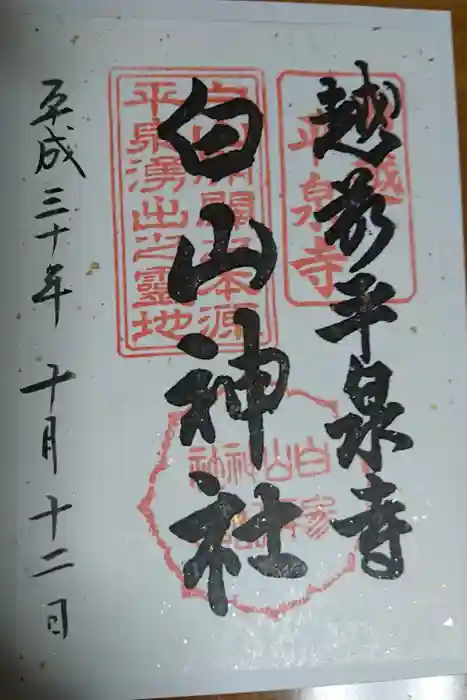 越前平泉寺
白山神社
平成三十年 十月十二日
平泉寺
白山開闢之本源
平泉湧出之靈地
白山神社